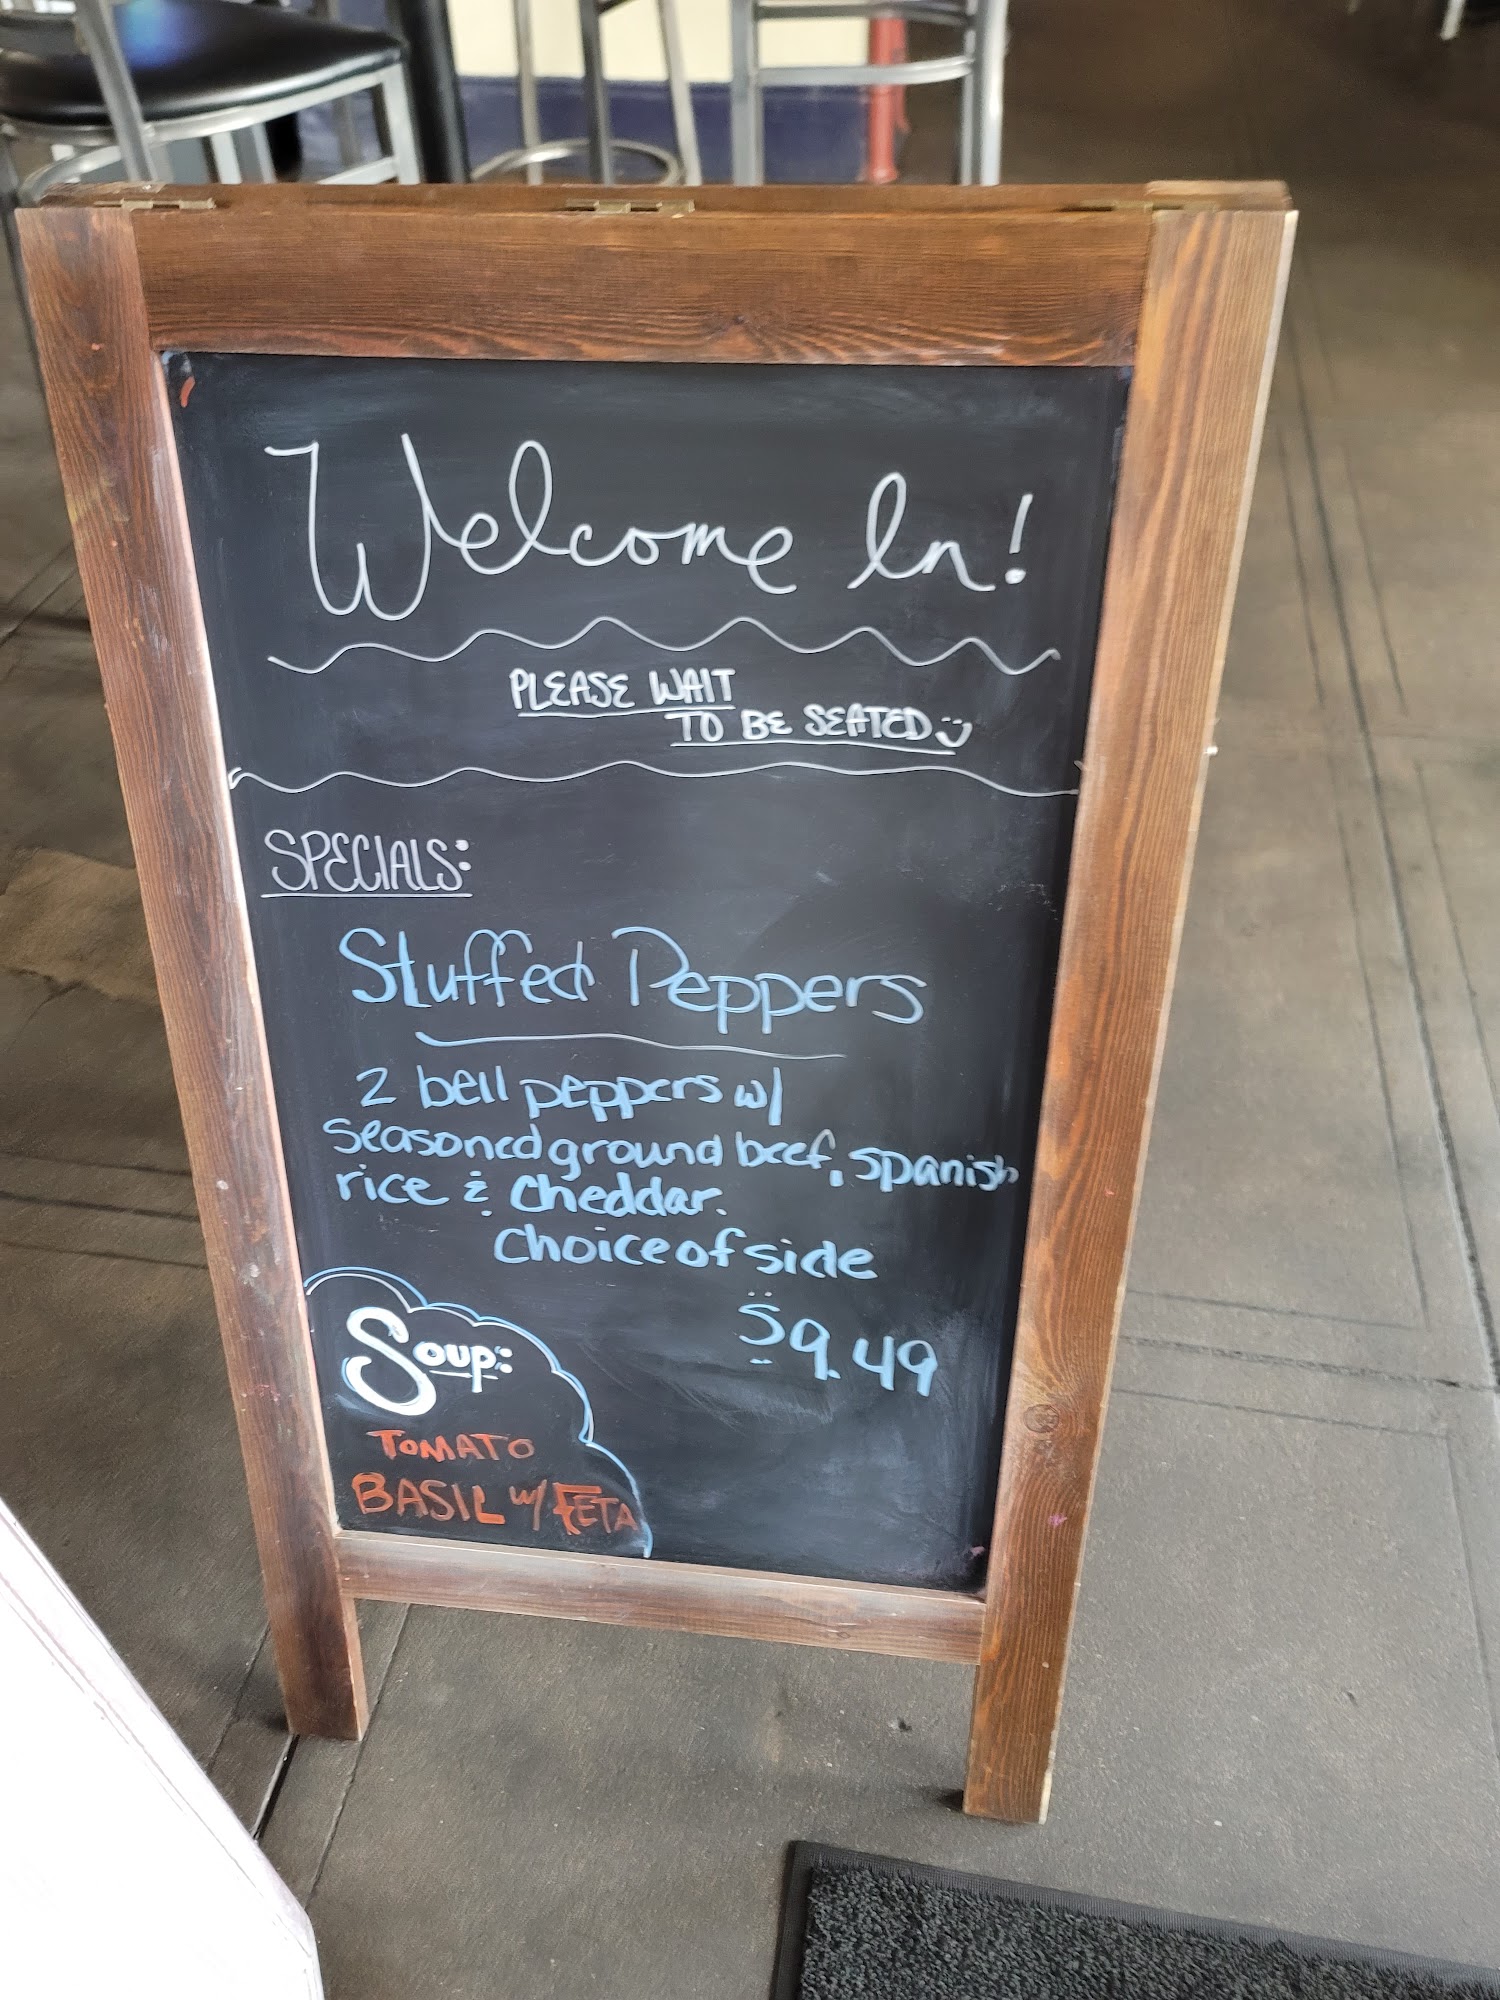 Welcome In!
PLEASE WAIT
TO BE SEATED
SPECIALS:
Stuffed Peppers
2 bell peppers w/
seasoned ground beef, spanish
rice & cheddar.
Choice of side
$9.49
Soup:
TOMATO
BASIL w/ FETA